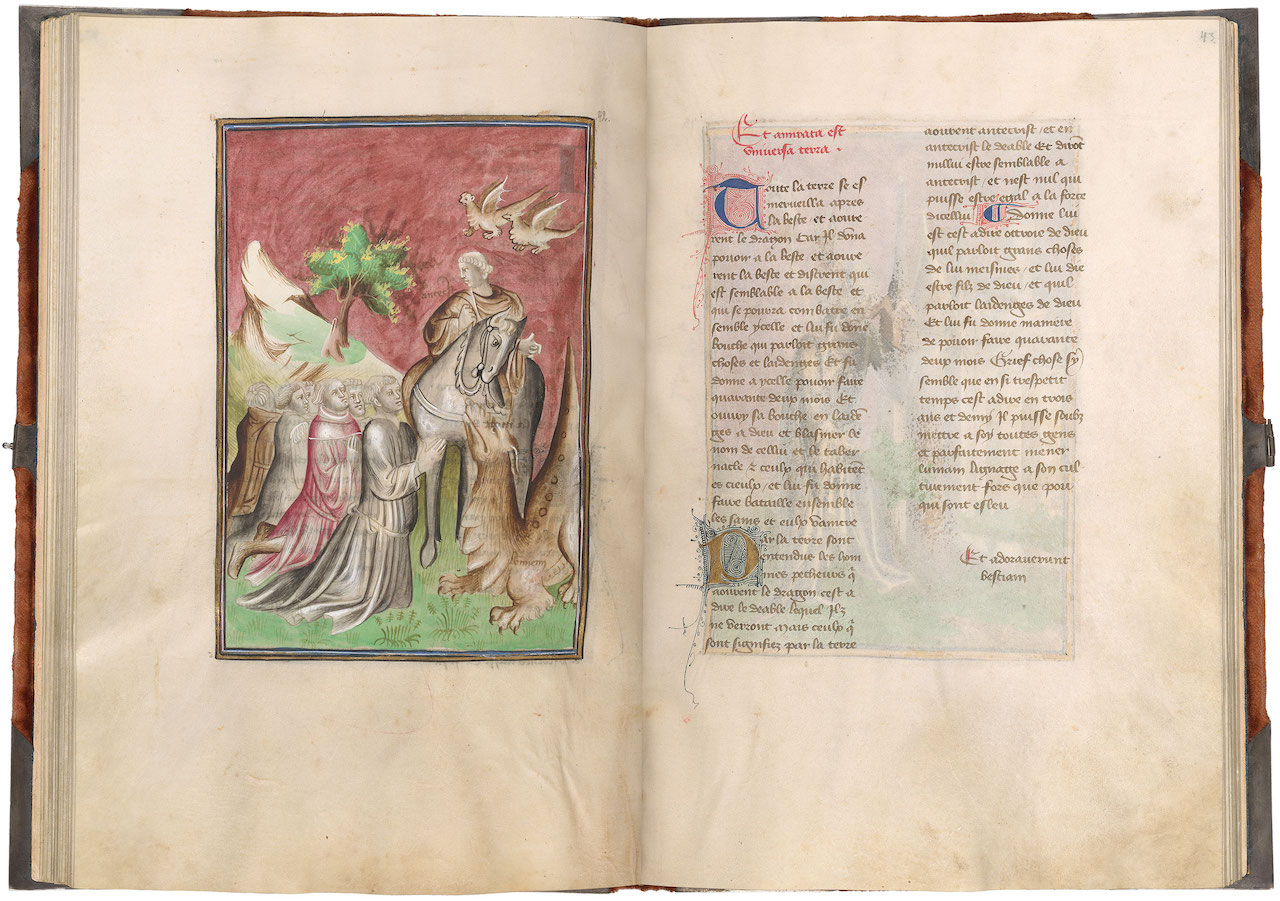 43
Et ammirata est
vniversa terra ·
Toute la terre se es
merveilla apres
la beste / et aoure
rent le dragon Car Il dona
pouoir a la beste et aoure
rent la beste et disrent qui
est semblable a la beste et
qui se pourra combatre en
semble ycelle et lui fu done
bouche qui parloit grans
choses et laidenges Et fu
donne a ycelle pouoir faire
quarante deux mois Et
ouury sa bouche en laiden
ges a dieu et blasmer le
nom de cellui et le taber
nacle & ceulx qui habitet
es cieulx / et lui fu donne
faire bataille ensemble
les sains et eulx vaincre
Par la terre sont
entendus les hom
mes pecheurs q
aourent le dragon cest a
dire le deable lequel Ilz
ne verront Mais ceulx q
sont signifiez par la terre
aourent antecrist / et en
antecrist le deable Et diront
nullui estre semblable a
antecrist / et nest nul qui
puisse estre egal a la force
dicellui Et donne lui
est cest adire ottroie de dieu
quil parloit grans choses
de lui meismes / et lui die
estre filz de dieu / et quil
parloit laidenges de dieu
Et lui fu donne maniere
de pouoir faire quarante
deux mois Grief chose sy
semble que en si trespetit
temps cest a dire en trois
ans et demy Il puisse soubz
mettre a soy toutes gens
et parfaitement mener
lumain lignage a son cul
tiuement fors que pou
qui sont esleu
Et adorauerunt
bestiam